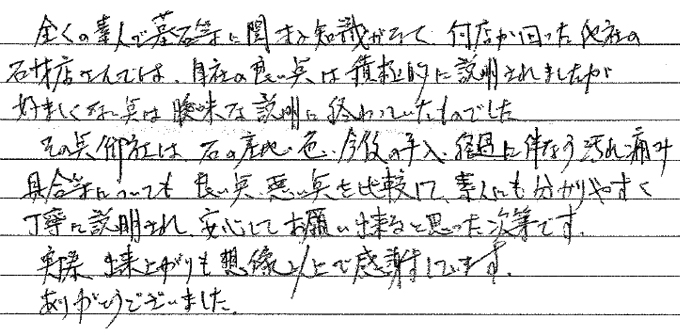 全くの素人で墓石等に関する知識がなくて、何店か回った他社の
石材店さんでは、自社の良い点は積極的に説明されましたが
好ましくない点は曖昧な説明に終わっていたものでした
その点御社は、石の産地・色・今後の手入・経過に伴なう汚れ痛み
具合等についても良い点、悪い点を比較して、素人にも分かりやすく
丁寧に説明され、安心してお願い出来ると思った次第です。
実際、出来上がりも想像以上で感謝しています。
ありがとうございました。